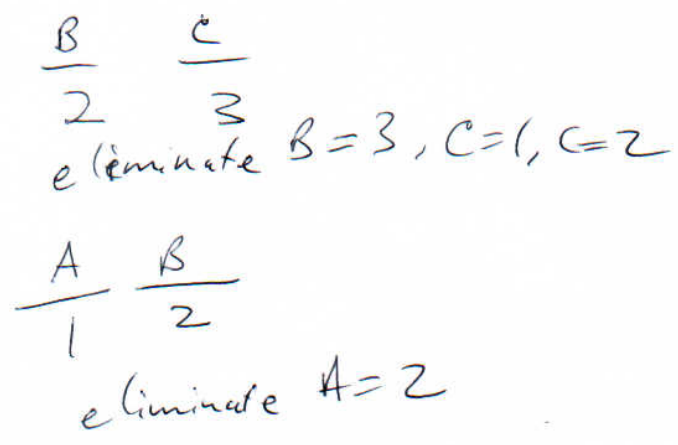 B C
2 3
eliminate B=3, C=1, C=2
A B
1 2
eliminate A=2